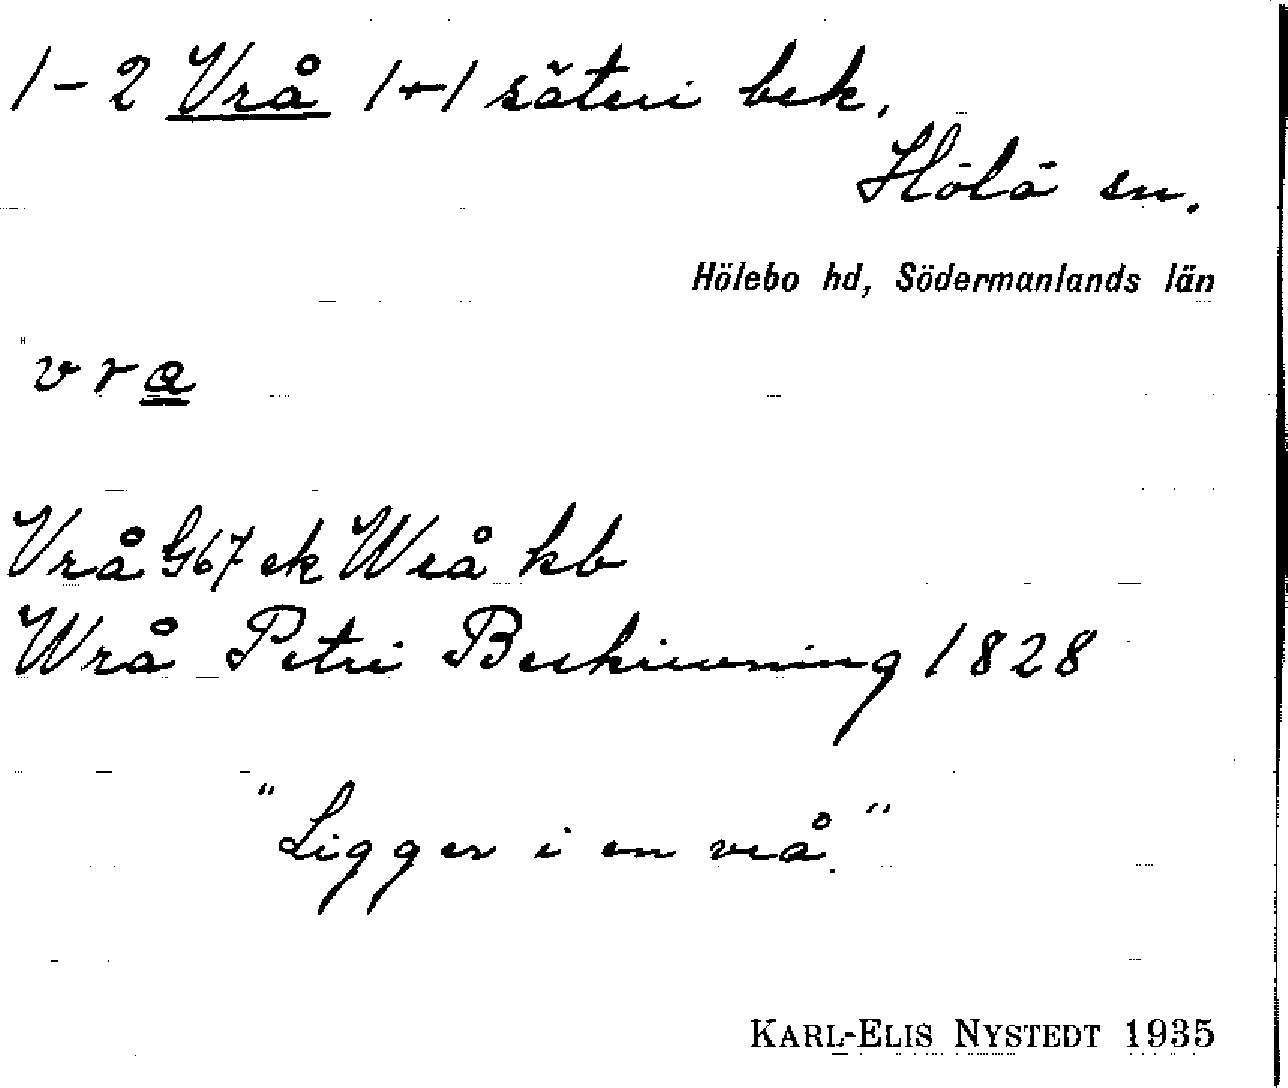 1-2 Vrå 1+1 säteri bek.
Hölö sn.
Hölebo hd, Södermanlands län
vra
Vrå G67 ek Wrå kb
Wrå Petri Beskrivning 1828
"Ligger i en vrå."
KARL-ELIS NYSTEDT 1935